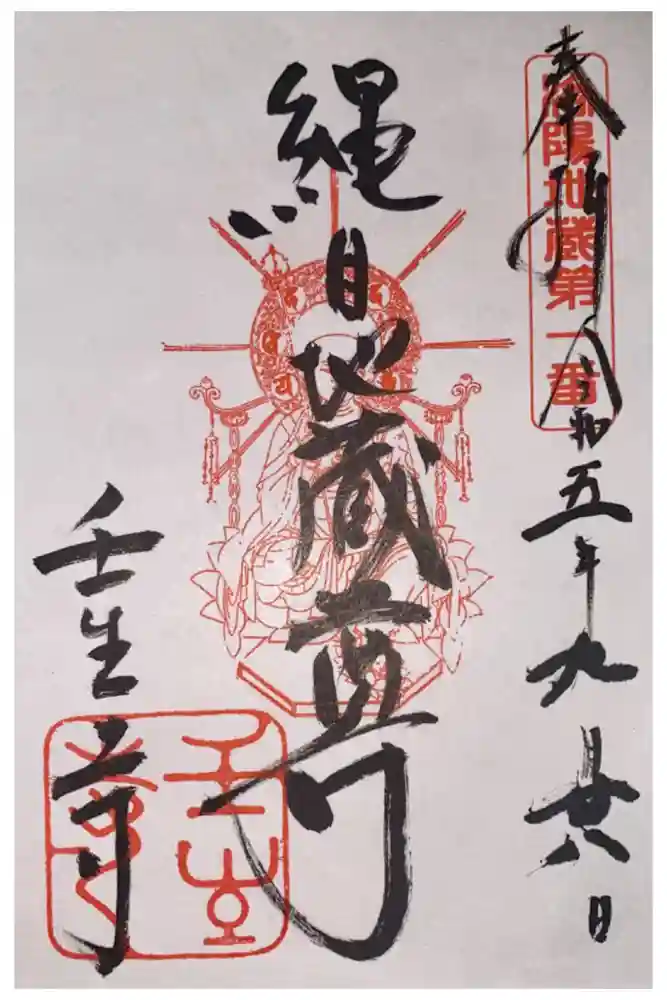 奉拝 令和五年九月廿八日
洛陽地蔵第一番
縄目地蔵尊
壬生寺
壬生